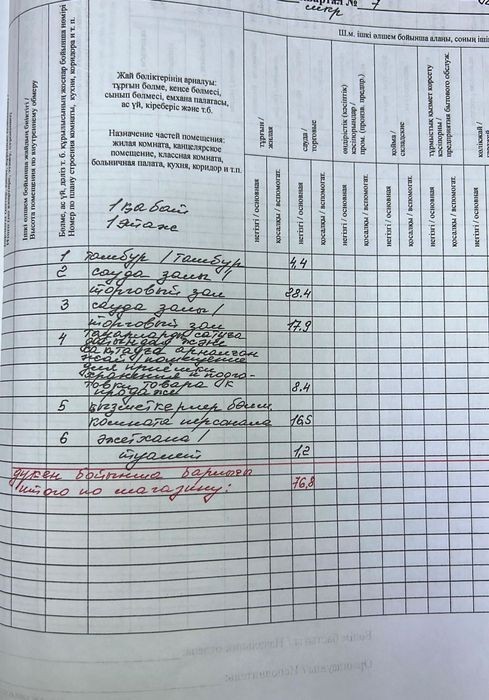 № 7
мкр
Ш.м. ішкі өлшем бойынша алаңы, соның ішінде
Ішкі өлшем бойынша жайдың биіктігі /
Высота помещения по внутреннему обмеру
Бөлме, ас үй, дәліз т. б. құрылысының жоспар бойынша нөмірі
Номер по плану строения комнаты, кухни, коридора и т. п.
Жай бөліктерінің арналуы:
тұрғын бөлме, кеңсе бөлмесі,
сынып бөлмесі, емхана палатасы,
ас үй, кіреберіс және т.б.
Назначение частей помещения:
жилая комната, канцелярское
помещение, классная комната,
больничная палата, кухня, коридор и т.п.
тұрғын /
жилая
сауда /
торговые
өндірістік (кәсіптік)
кәсіпорындар /
пром. (произв. предпр.)
қойма /
складские
тұрмыстық қызмет көрсету
кәсіпорны /
предприятия бытового обслуж.
негізгі / основная
қосалқы / вспомогат.
негізгі / основная
қосалқы / вспомогат.
негізгі / основная
қосалқы / вспомогат.
негізгі / основная
қосалқы / вспомогат.
негізгі / основная
қосалқы / вспомогат.
1 қабат
1 этаж
1 тамбур / тамбур 4,4
2 сауда залы /
торговый зал 28.4
3 сауда залы /
торговый зал 17.9
4 тауарларды сатуға
дайындау және
сақтауға арналған
жай / помещение
для приемки
хранения и подго-
товки товара к
продаже 8.4
5 қызметкерлер бөлм.
комната персонала 16,5
6 әжетхана /
туалет 1,2
дүкен бойынша барлығы
итого по магазину: 76,8